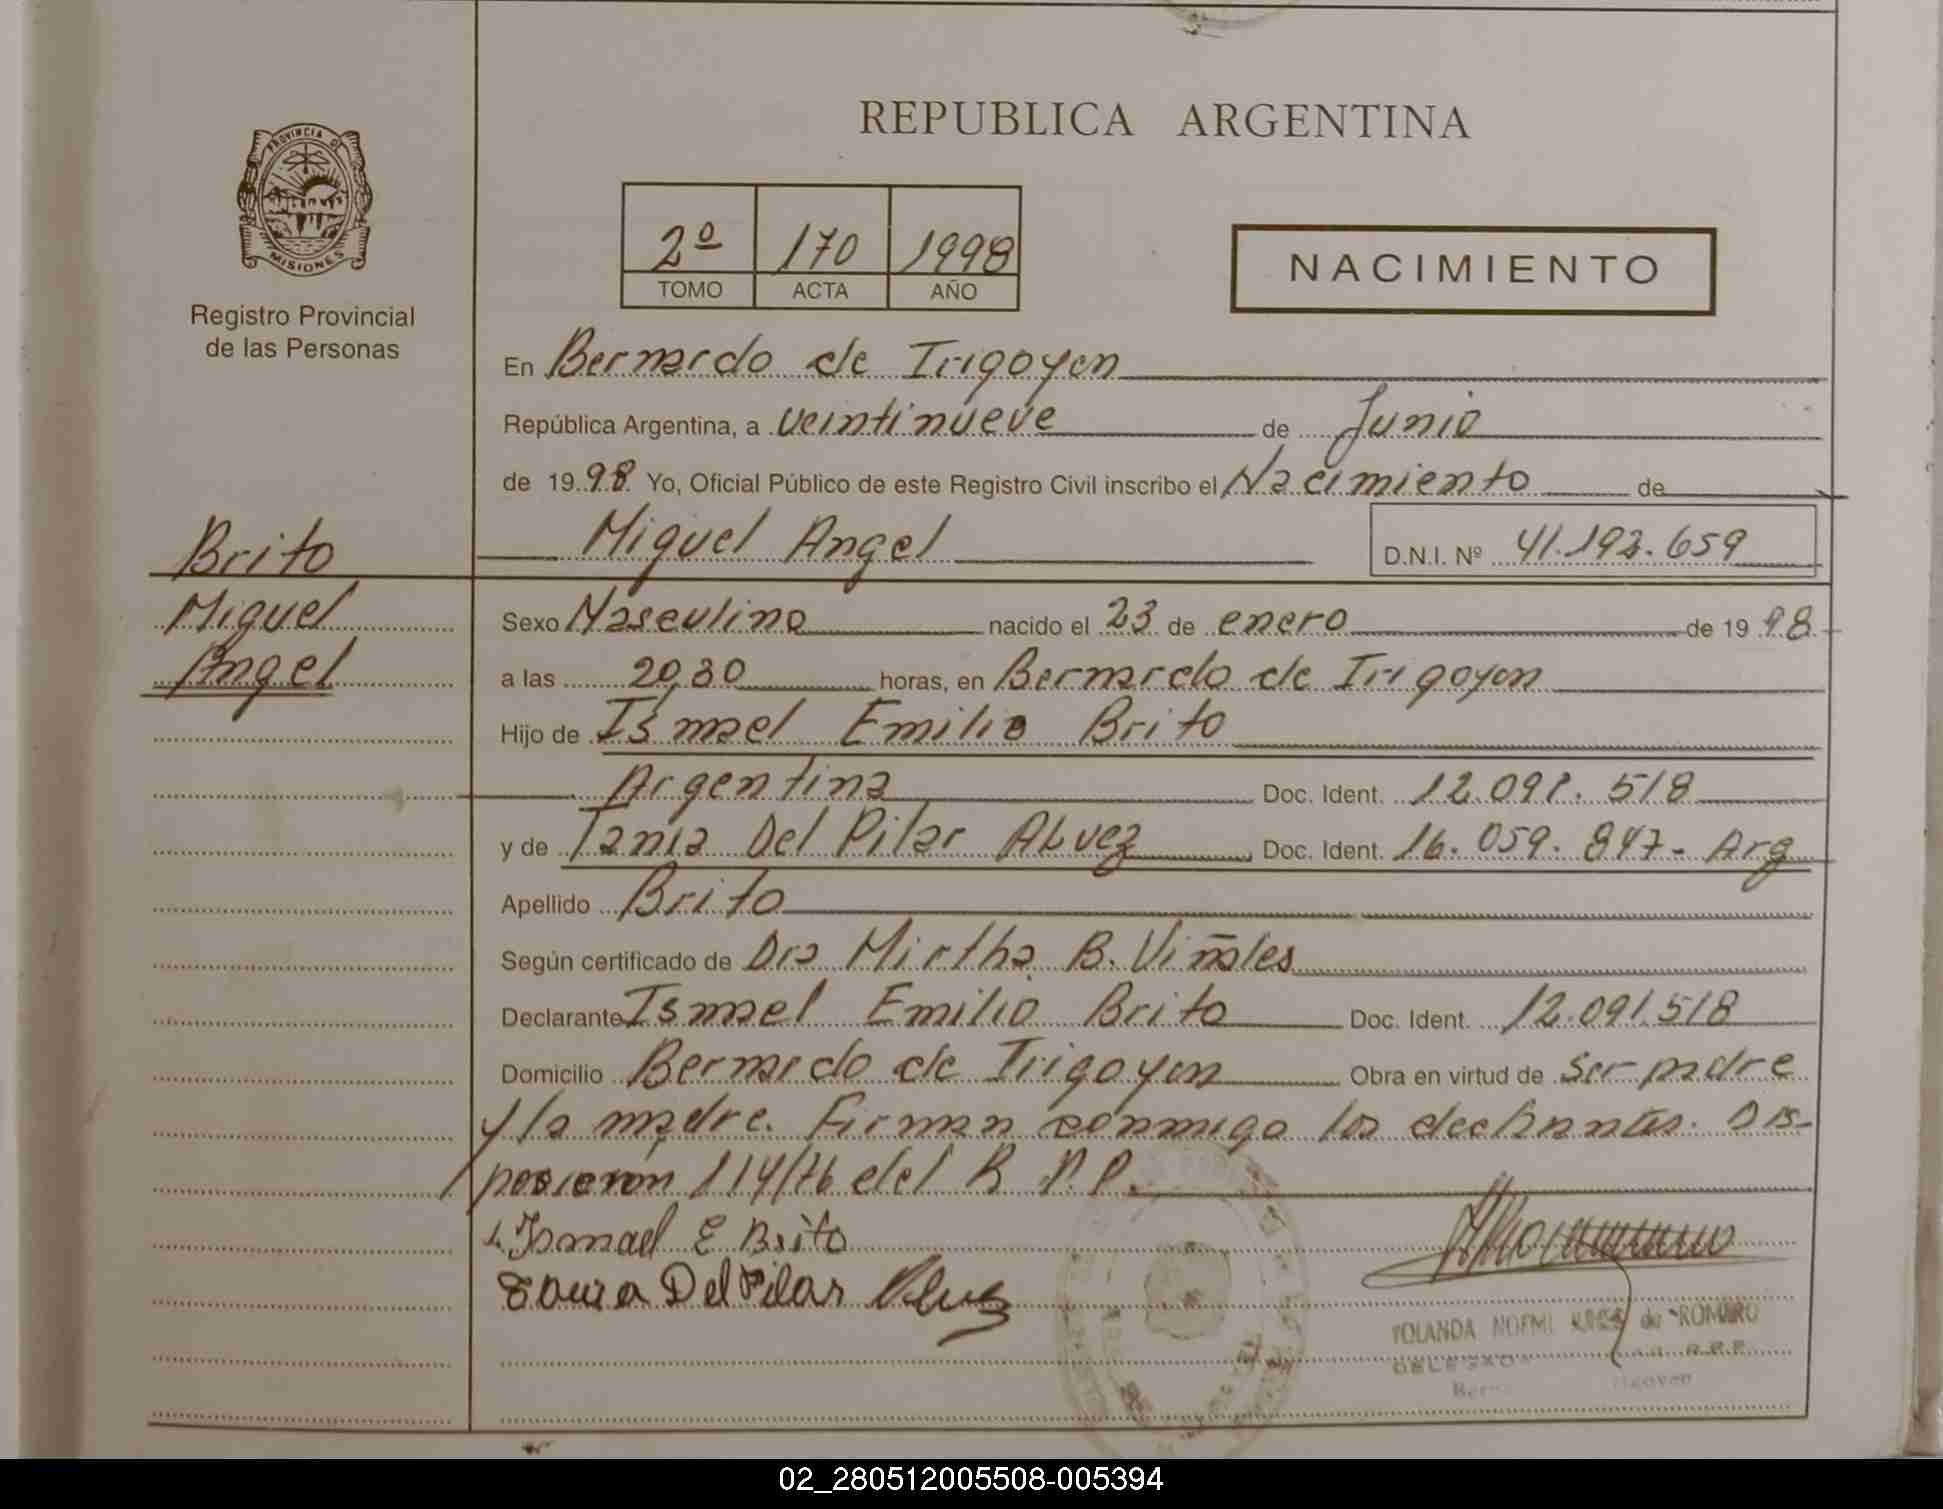 REPUBLICA ARGENTINA
PROVINCIA DE
MISIONES
Registro Provincial
de las Personas
2º 170 1998
TOMO ACTA AÑO
NACIMIENTO
En Bernardo de Irigoyen
República Argentina, a veintinueve de Junio
de 1998 Yo, Oficial Público de este Registro Civil inscribo el Nacimiento de
Miguel Angel D.N.I. Nº 41.192.659
Brito
Miguel
Angel
Sexo Masculino nacido el 23 de enero de 1998
a las 20,30 horas, en Bernardo de Irigoyen
Hijo de Ismael Emilio Brito
Argentina Doc. Ident. 12.091.518
y de Tania Del Pilar Alvez Doc. Ident. 16.059.847- Arg
Apellido Brito
Según certificado de Dra Mirtha B. Viñales
Declarante Ismael Emilio Brito Doc. Ident. 12.091.518
Domicilio Bernardo de Irigoyen Obra en virtud de ser padre
y la madre. Firman conmigo los declarantes. Dis-
posición 114/76 del R.P.P.
Ismael E Brito
Tania Del Pilar Alvez
YOLANDA NOEMI de ROMERO
02_280512005508-005394